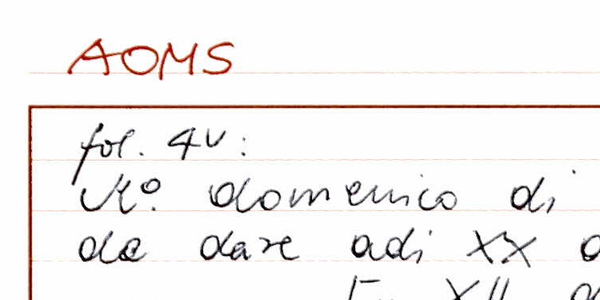 AOMS
fol. 4v:
Mo. domenico di
de dare adi XX
XII